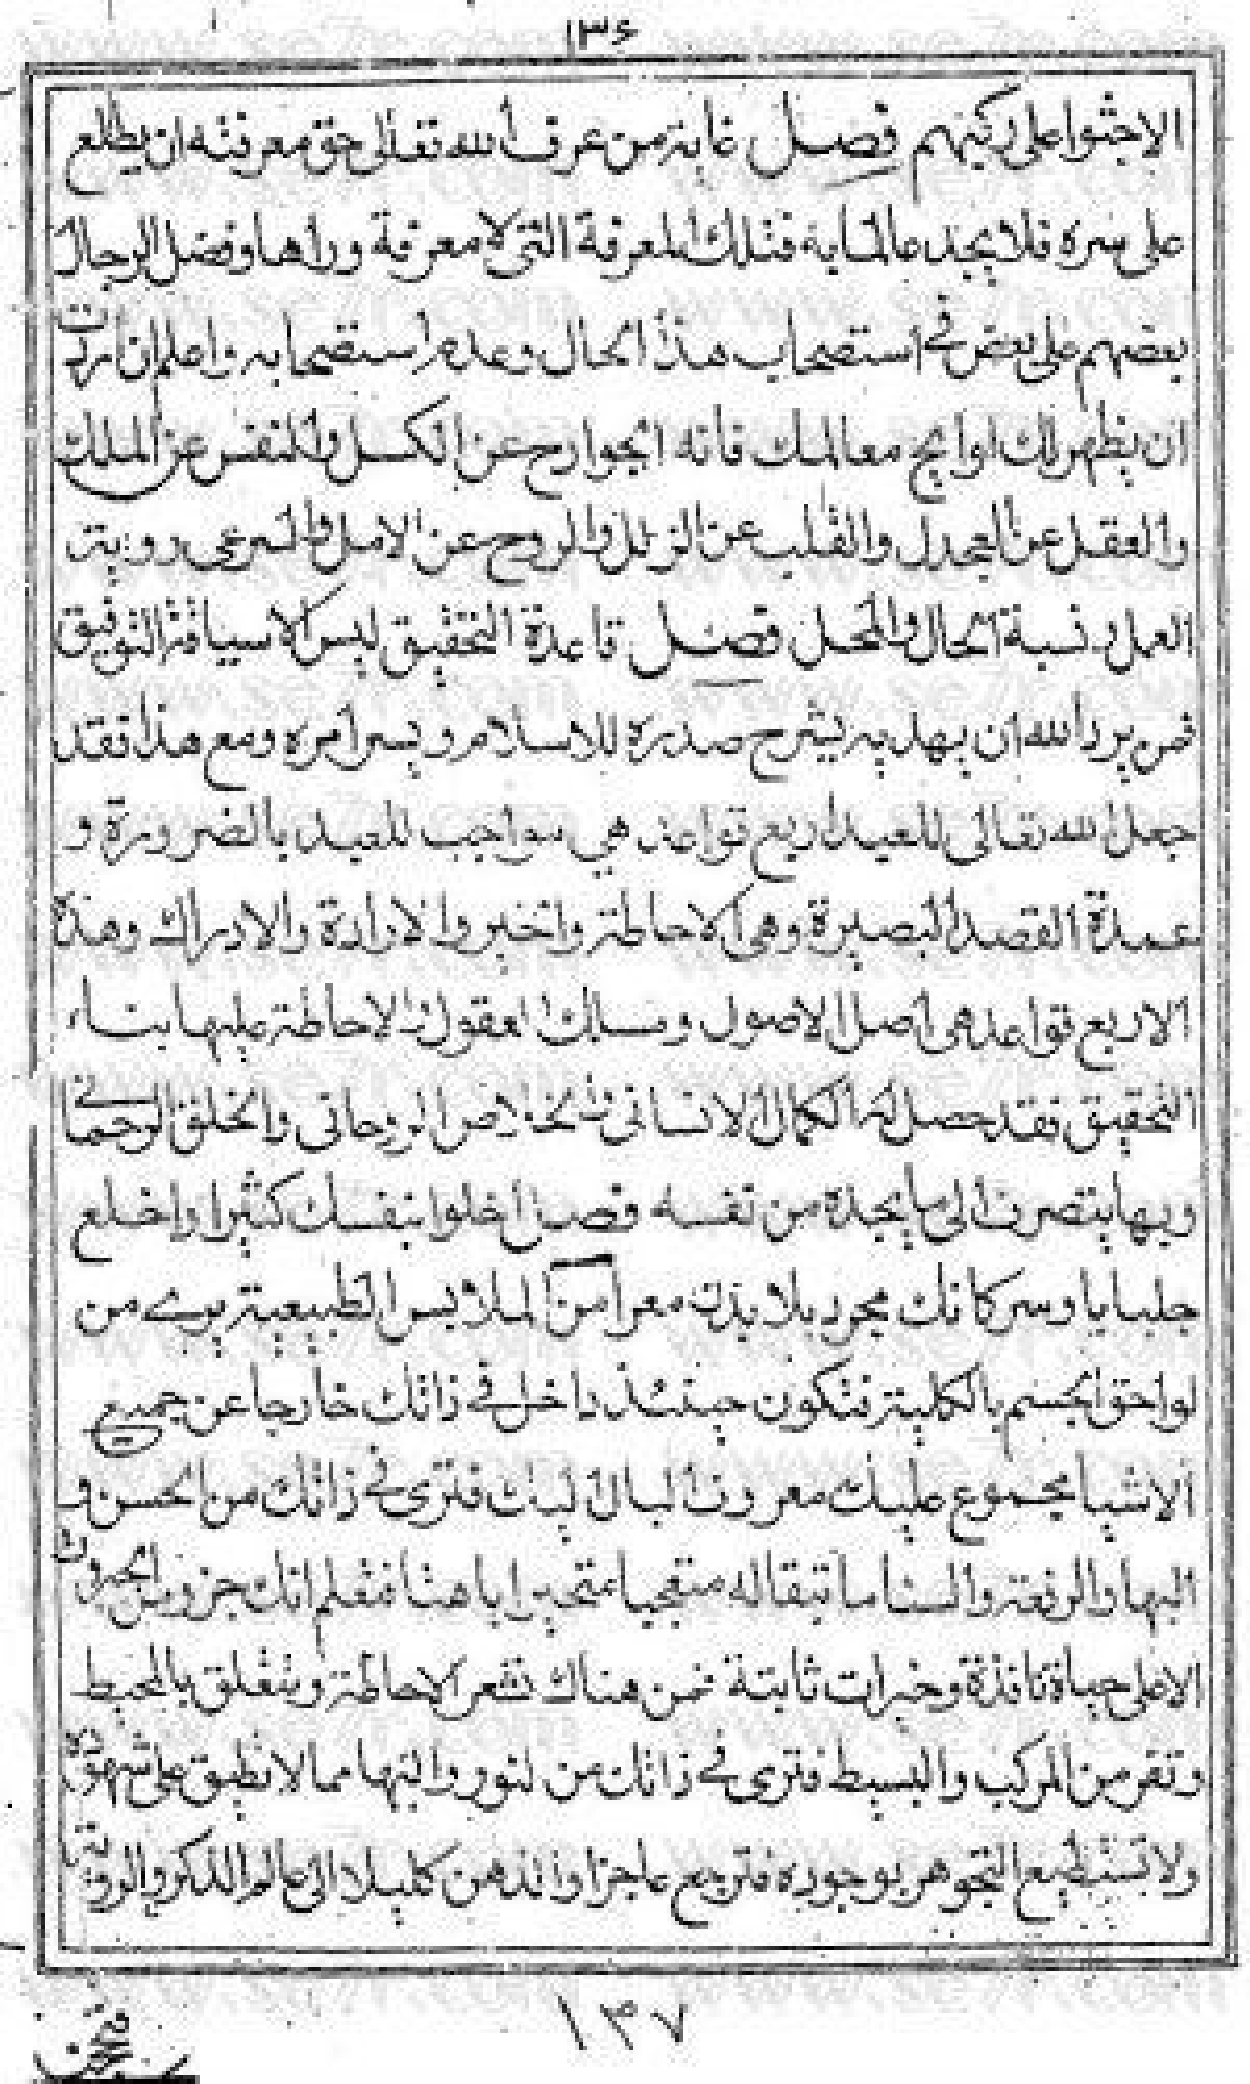 ١٣٦
الاجثوا على ركبهم فصل غاية من عرف الله تعالى حق معرفته ان يطلع
على سره فلا يجد عالما به فتلك المعرفة التى لا معرفة وراها وفضل الرجال
بعضهم على بعض فى استصحاب هذا الحال وعدم استصحابه واعلم ان اردت
ان يظهر لك لوايح معالمك فانه الجوارح عن الكسل والنفس عن الملك
والعقل عن الجدل والقلب عن الزلل والروح عن الامل والسر عن روية
العمل ونسبة الحال والمحل فصل قاعدة التحقيق ليس الا سياقة التوفيق
فمن يرد الله ان يهديه يشرح صدره للاسلام ويسر امره ومع هذا فقد
جعل الله تعالى للعبد اربع قواعد هى مواجب للعبد بالضرورة و
عمدة القصد البصيرة وهى الاحاطة والخبر والارادة والادراك وهذه
الاربع قواعد هى اصل الاصول ومسلك العقول والاحاطة عليها بناء
التحقيق فقد حصل له الكمال الانسانى والخلاص الروحانى والخلق الرحمانى
وبها يتصرف الى ما يجده من نفسه فصل اخلوا بنفسك كثيرا واخلع
جلبابا وسر كانك مجرد بلا بدن معرا من الملابس الطبيعية برى من
لواحق الجسم بالكلية فتكون حينئذ داخل فى ذاتك خارجا عن جميع
الاشيا مجموع عليك معروف البال اليك فترى فى ذاتك من الحسن و
البها والرفعة والسنا ما تبقا له متعجبا متحيرا باهتا فتعلم انك جزو من الجبروت
الاعلى حياة نافذة وخبرات ثابتة فمن هناك تشعر الاحاطة ويتعلق بالمحيط
وتفر من المركب والبسيط فترى فى ذاتك من النور والبها مما لا تطيق على شهوده
ولا تستطيع التجوهر بوجوده فترجع عاجزا والذهن كليلا الى عالم الذكر والروية
١٣٧